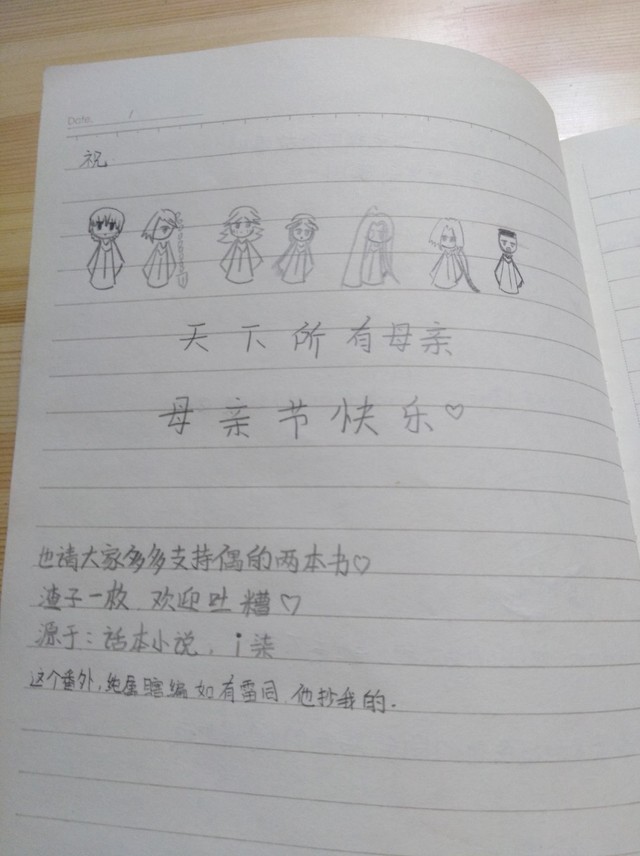 Date. /
祝
天下所有母亲
母亲节快乐♡
也请大家多多支持偶的两本书♡
渣子一枚 欢迎吐糟♡
源于：话本小说，i柒
这个番外，纯属瞎编 如有雷同，他抄我的.